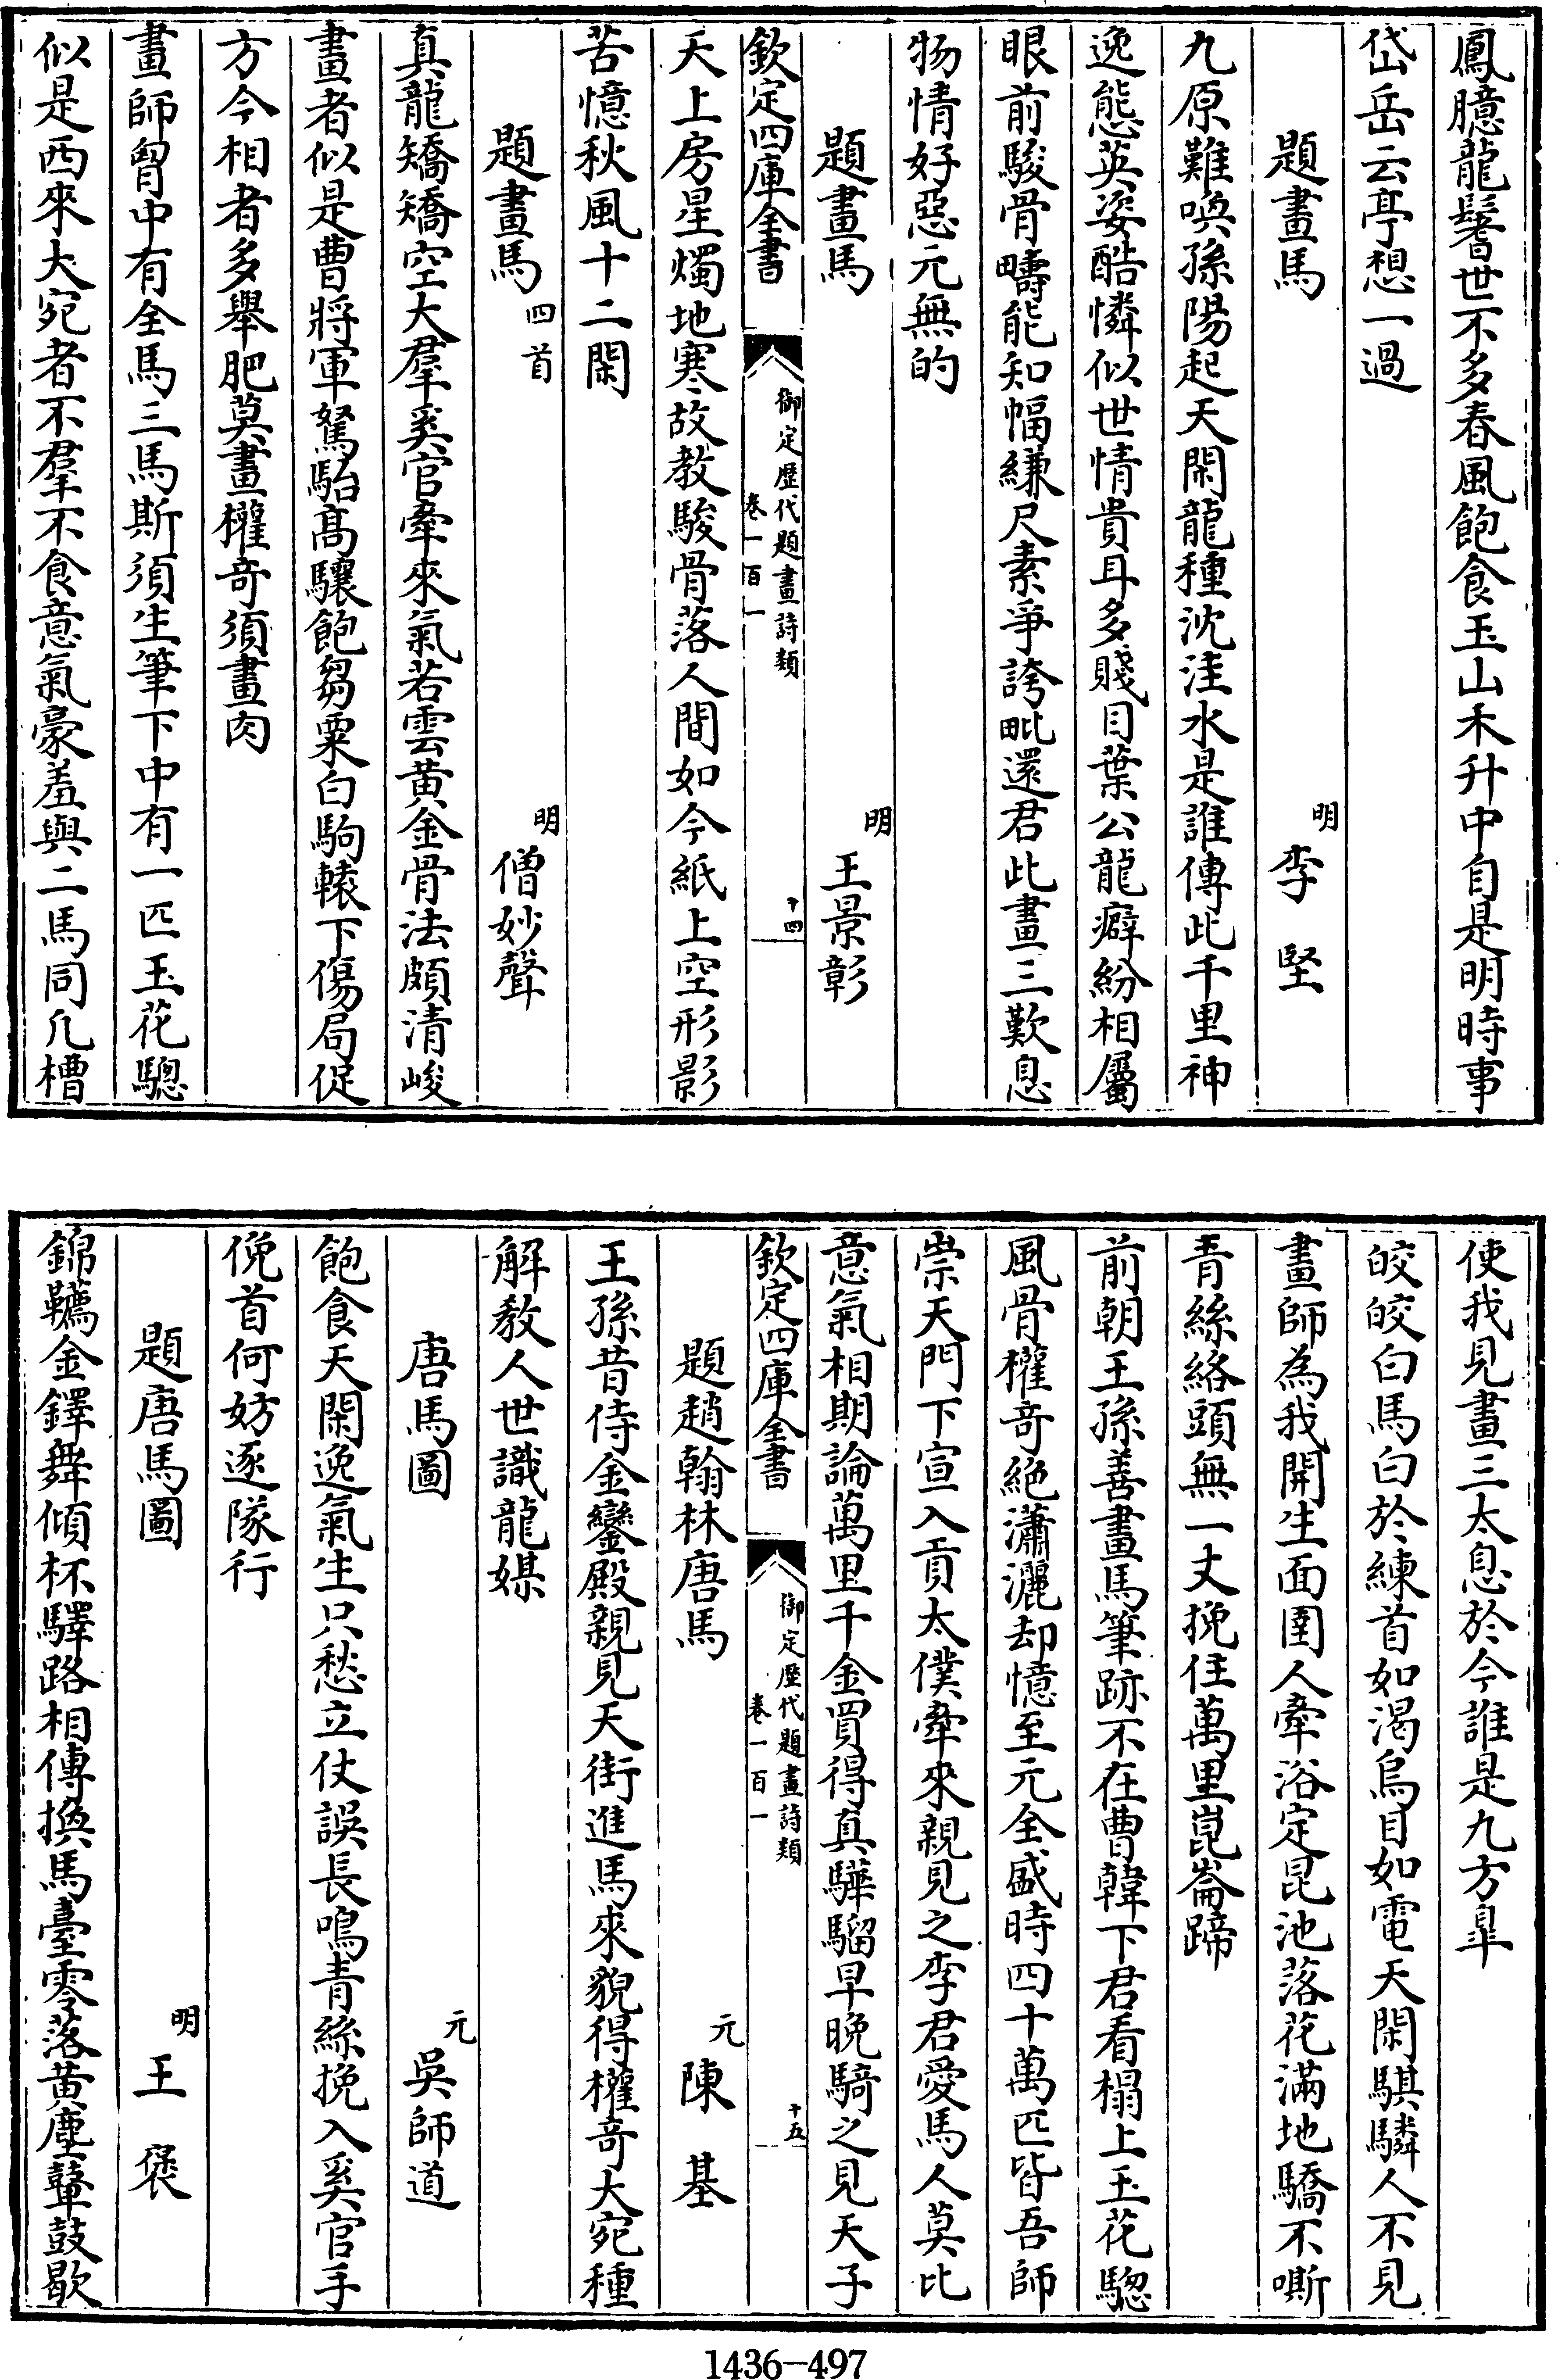 鳳臆龍鬐世不多春風飽食玉山禾升中自是明時事
岱岳云亭想一過
題畫馬 明 李堅
九原難喚孫陽起天閑龍種沈洼水是誰傳此千里神
逸態英姿酷憐似世情貴耳多賤目葉公龍癖紛相屬
眼前駿骨疇能知幅縑尺素爭誇毗還君此畫三歎息
物情好惡元無的
題畫馬 明 王景彰
欽定四庫全書 御定歷代題畫詩類 卷一百一 十四
天上房星燭地寒故教駿骨落人間如今紙上空形影
苦憶秋風十二閑
題畫馬 四首 明 僧妙聲
真龍矯矯空大羣奚官牽來氣若雲黃金骨法頗清峻
畫者似是曹將軍駑駘高驤飽芻粟白駒轅下傷局促
方今相者多舉肥莫畫權奇須畫肉
畫師胷中有全馬三馬斯須生筆下中有一匹玉花驄
似是西來大宛者不羣不食意氣豪羞與二馬同凡槽
使我見畫三太息於今誰是九方臯
皎皎白馬白於練首如渴烏目如電天閑騏驎人不見
畫師為我開生面圉人牽浴定昆池落花滿地驕不嘶
青絲絡頭無一丈挽住萬里崑崙蹄
前朝王孫善畫馬筆跡不在曹韓下君看榻上玉花驄
風骨權奇絕瀟灑却憶至元全盛時四十萬匹皆吾師
崇天門下宣入貢太僕牽來親見之李君愛馬人莫比
意氣相期論萬里千金買得真驊騮早晚騎之見天子
欽定四庫全書 御定歷代題畫詩類 卷一百一 十五
題趙翰林唐馬 元 陳基
王孫昔侍金鑾殿親見天街進馬來貌得權奇大宛種
解教人世識龍媒
唐馬圖 元 吳師道
飽食天閑逸氣生只愁立仗誤長鳴青絲挽入奚官手
俛首何妨逐隊行
題唐馬圖 明 王褒
錦韉金鐸舞傾杯驛路相傳換馬臺零落黃塵鼙鼓歇
1436-497